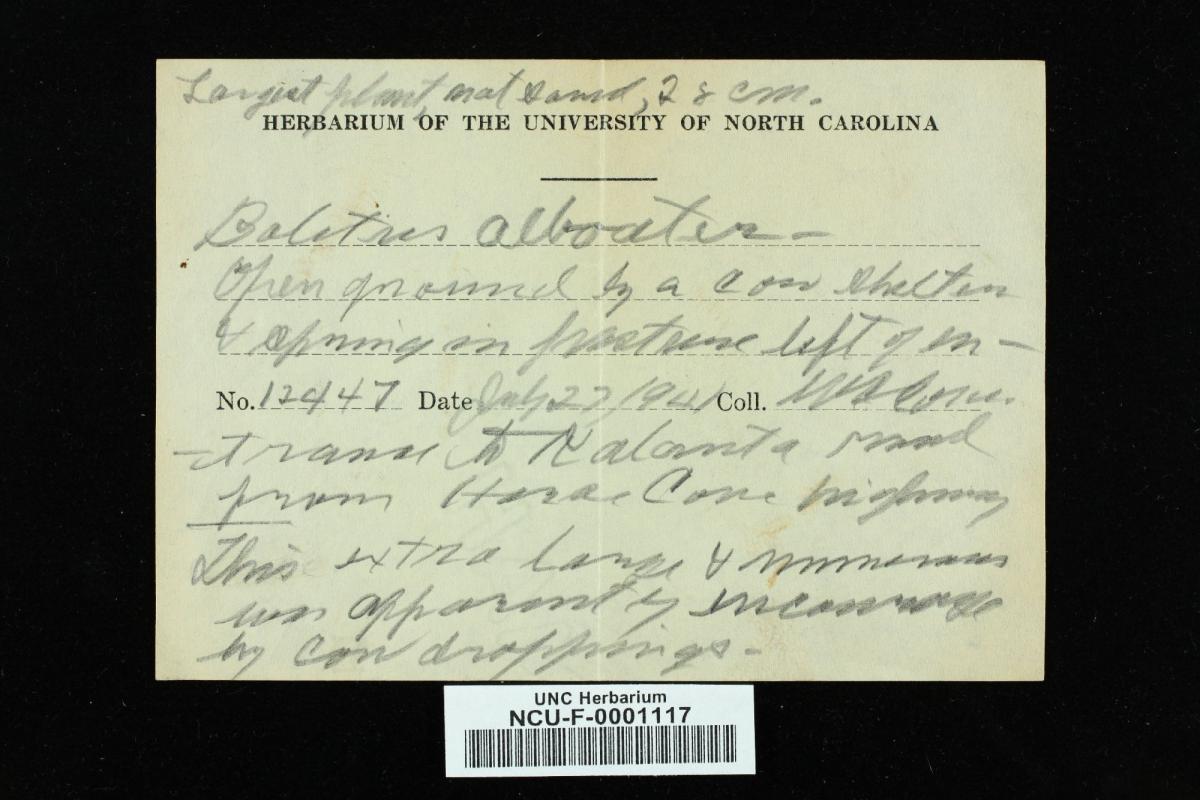 Largest plant, not sound, 28 cm.
HERBARIUM OF THE UNIVERSITY OF NORTH CAROLINA
Boletus alboater -
Open ground by a cow shelter
& spring in pasture left of en-
No. 12447 Date July 27, 1941 Coll. W C Coker.
-trance to Kalanta road
from Horse Cove highway
This extra large & numerous
was apparently encourage
by cow droppings -
UNC Herbarium
NCU-F-0001117